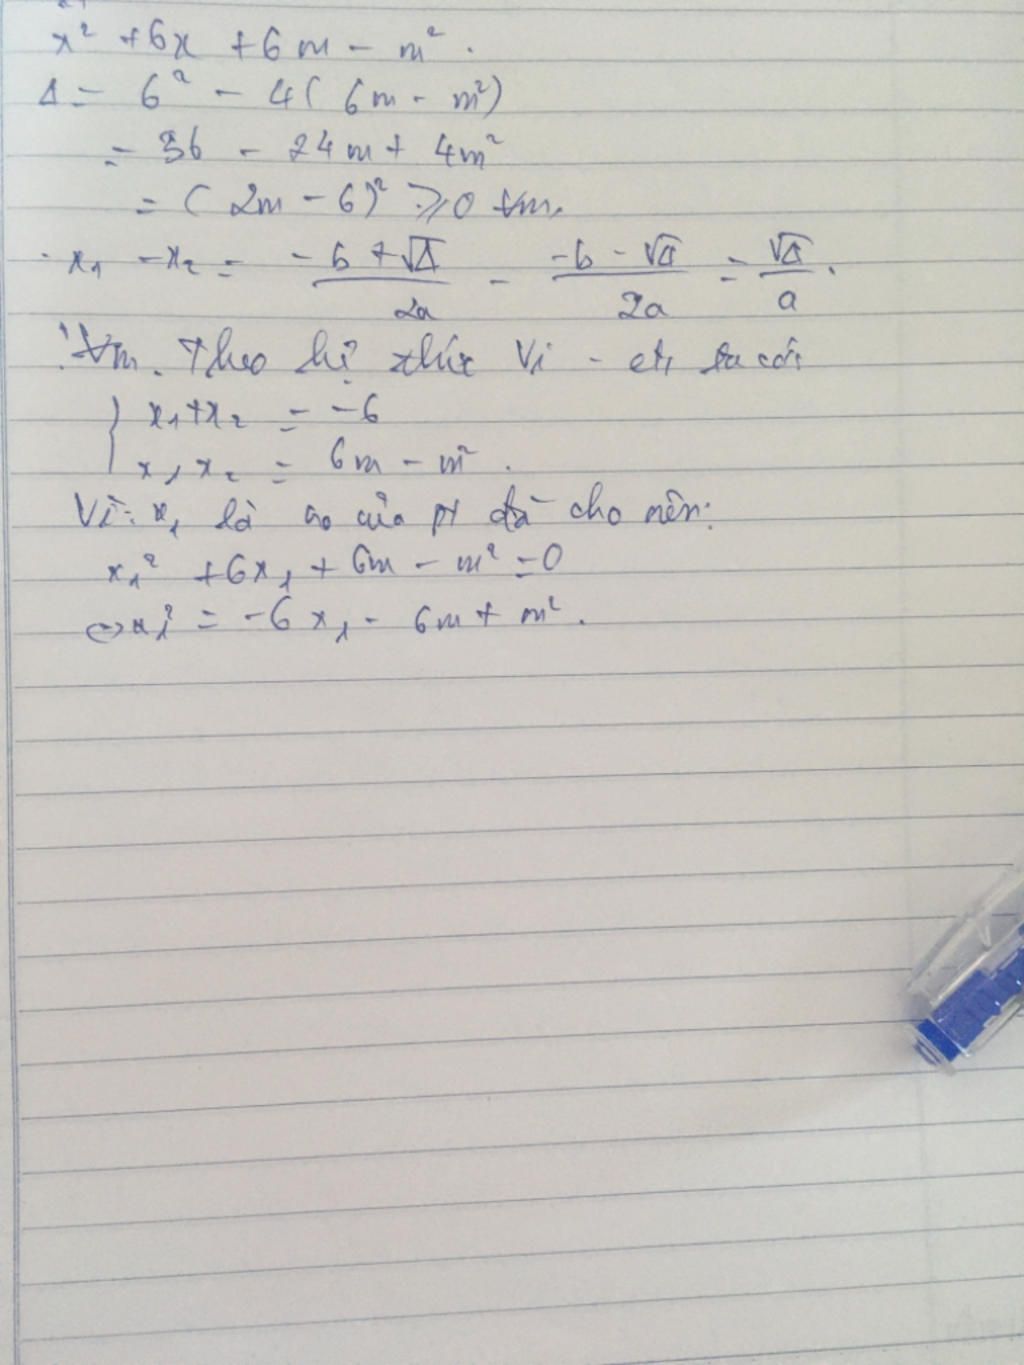 x² + 6x + 6m - m².
Δ = 6² - 4(6m - m²)
= 36 - 24m + 4m²
= (2m - 6)² ≥ 0 ∀m.
x₁ - x₂ = (-6 + √Δ)/2a - (-6 - √Δ)/2a = √Δ/a.
∀m. Theo hệ thức Vi - et, ta có:
{ x₁ + x₂ = -6
x₁x₂ = 6m - m².
Vì: x₁ là no của pt đã cho nên:
x₁² + 6x₁ + 6m - m² = 0
⇔ x₁² = -6x₁ - 6m + m².